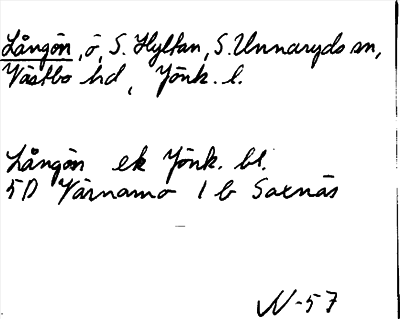 Långön, ö, S. Hyltan, S. Unnaryds sn,
Västbo hd, Jönk. l.
Långön ek Jönk. bl.
5D Värnamo 1 b Saxnäs
N-57